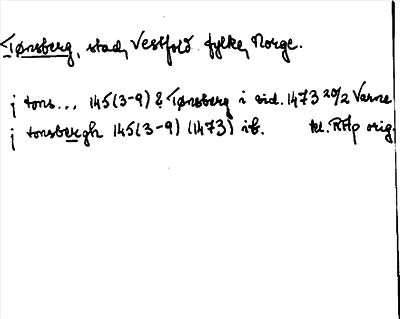 Tønsberg, stad, Vestfold fylke, Norge.
j tons... 145(3-9) & Tønsberg i vid. 1473 20/2 Varne
j tonsbergh 145(3-9) (1473) ib. RAp orig.